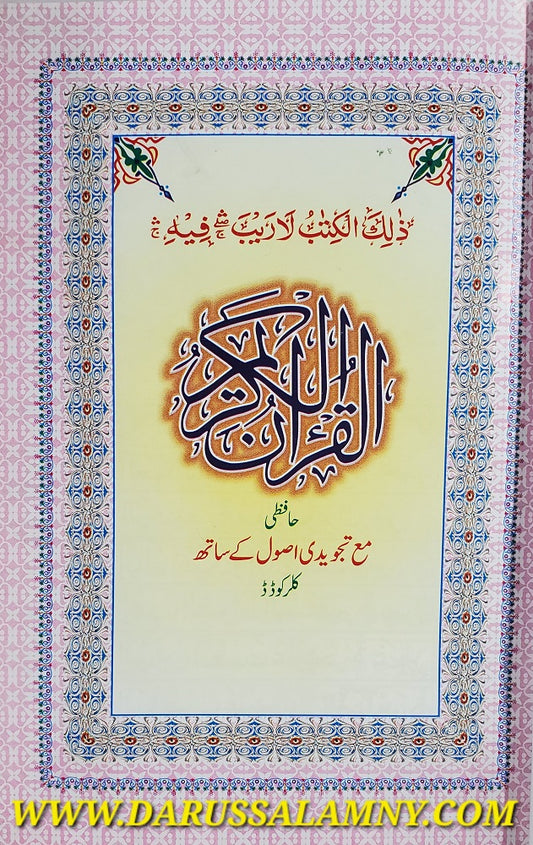 ذٰلِكَ الْكِتٰبُ لَا رَيْبَ ۛۖ فِيْهِ ۛۚ
القرآن الكريم
حافظی
مع تجویدی اصول کے ساتھ
کلر کوڈڈ
WWW.DARUSSALAMNY.COM